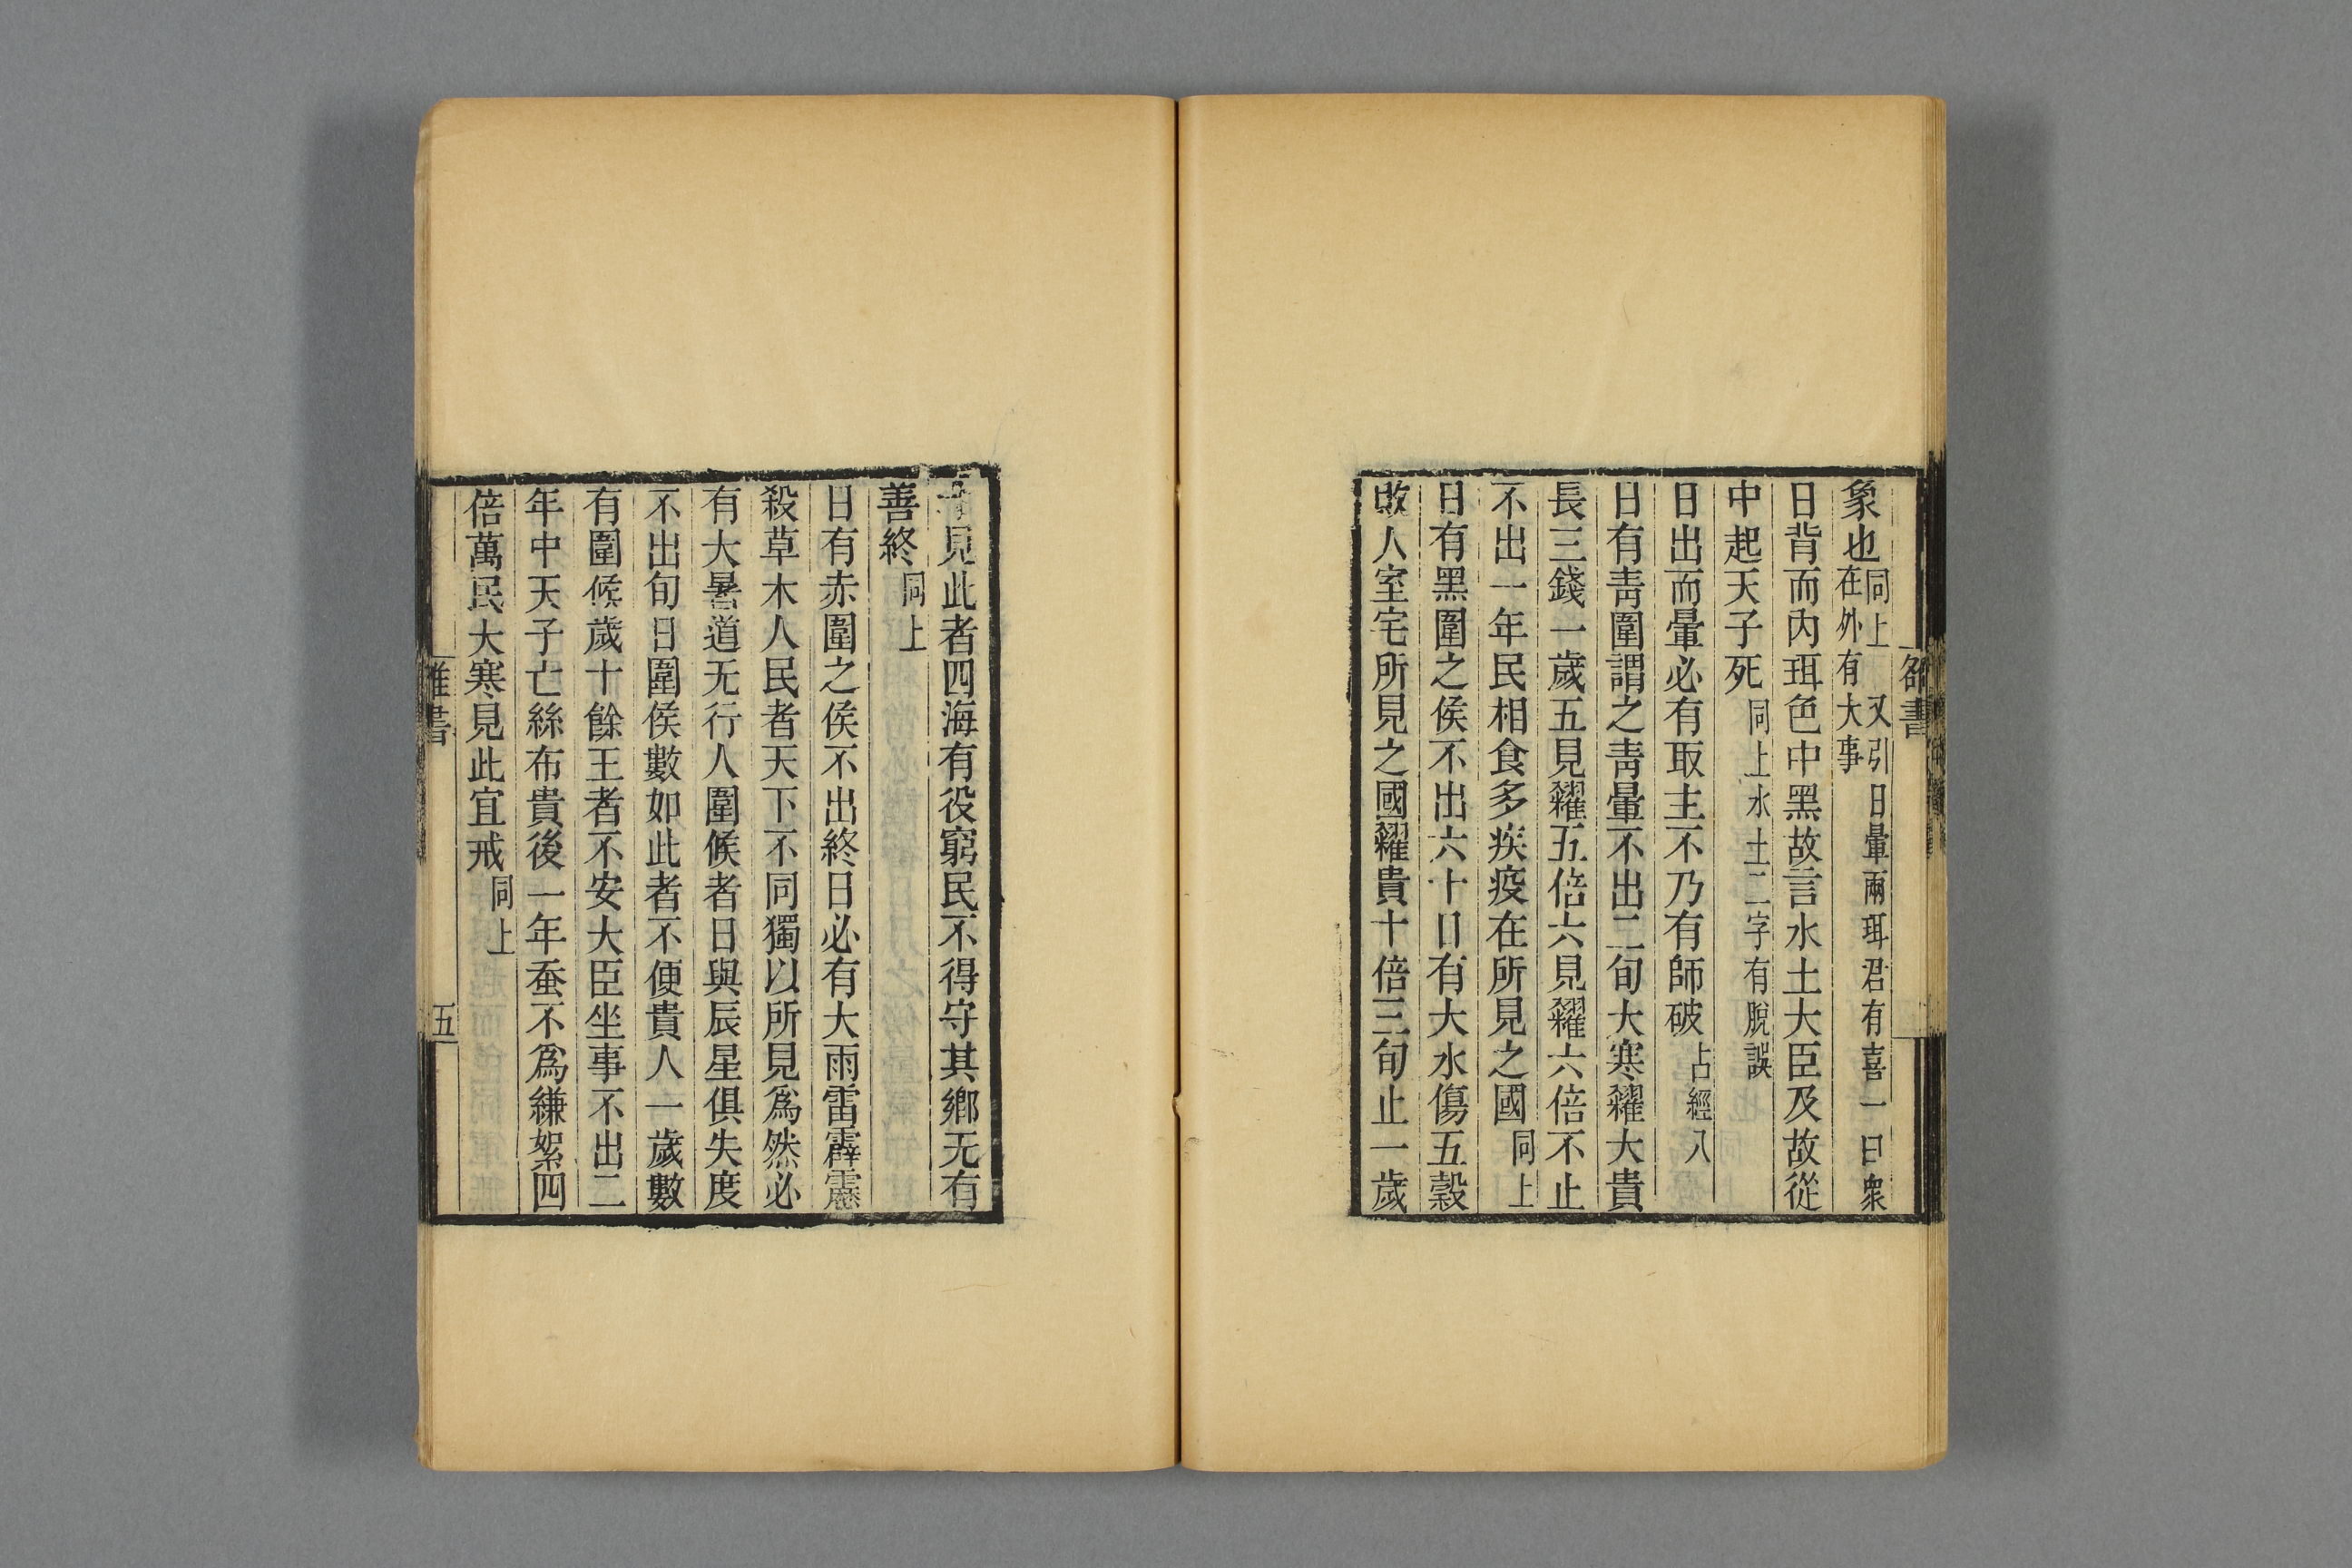 象也同上 又引日暈兩珥君有喜一曰衆在外有大事
日背而內珥色中黑故言水土大臣及故從
中起天子死同上水土二字有脫誤
日出而暈必有取主不乃有師破占經八
日有靑圍謂之靑暈不出二旬大寒糴大貴
長三錢一歲五見糴五倍六見糴六倍不止
不出一年民相食多疾疫在所見之國同上
日有黑圍之侯不出六十日有大水傷五穀
敗人室宅所見之國糴貴十倍三旬止一歲
見此者四海有役窮民不得守其鄉无有
善終同上
日有赤圍之侯不出終日必有大雨雷霹靂
殺草木人民者天下不同獨以所見爲然必
有大暑道无行人圍候者日與辰星俱失度
不出旬日圍侯數如此者不便貴人一歲數
有圍候歲十餘王者不安大臣坐事不出二
年中天子亡絲布貴後一年蚕不爲縑絮四
倍萬民大寒見此宜戒同上
五